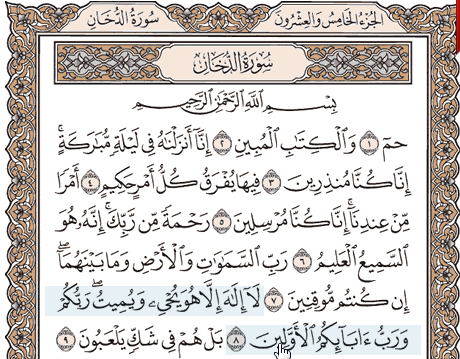 سُورَةُ الدُّخَانِ
الجُزْءُ الخَامِسُ وَالعِشْرُونَ
سُورَةُ الدُّخَانِ
بِسْمِ اللَّهِ الرَّحْمَٰنِ الرَّحِيمِ
حمٓ ١ وَالْكِتَابِ الْمُبِينِ ٢ إِنَّا أَنزَلْنَاهُ فِي لَيْلَةٍ مُّبَارَكَةٍۚ
إِنَّا كُنَّا مُنذِرِينَ ٣ فِيهَا يُفْرَقُ كُلُّ أَمْرٍ حَكِيمٍ ٤ أَمْرًا
مِّنْ عِندِنَاۚ إِنَّا كُنَّا مُرْسِلِينَ ٥ رَحْمَةً مِّن رَّبِّكَۚ إِنَّهُ هُوَ
السَّمِيعُ الْعَلِيمُ ٦ رَبِّ السَّمَٰوَٰتِ وَالْأَرْضِ وَمَا بَيْنَهُمَاۖ
إِن كُنتُم مُّوقِنِينَ ٧ لَآ إِلَٰهَ إِلَّا هُوَ يُحْيِۦ وَيُمِيتُۖ رَبُّكُمْ
وَرَبُّ ءَابَآئِكُمُ الْأَوَّلِينَ ٨ بَلْ هُمْ فِي شَكٍّ يَلْعَبُونَ ٩